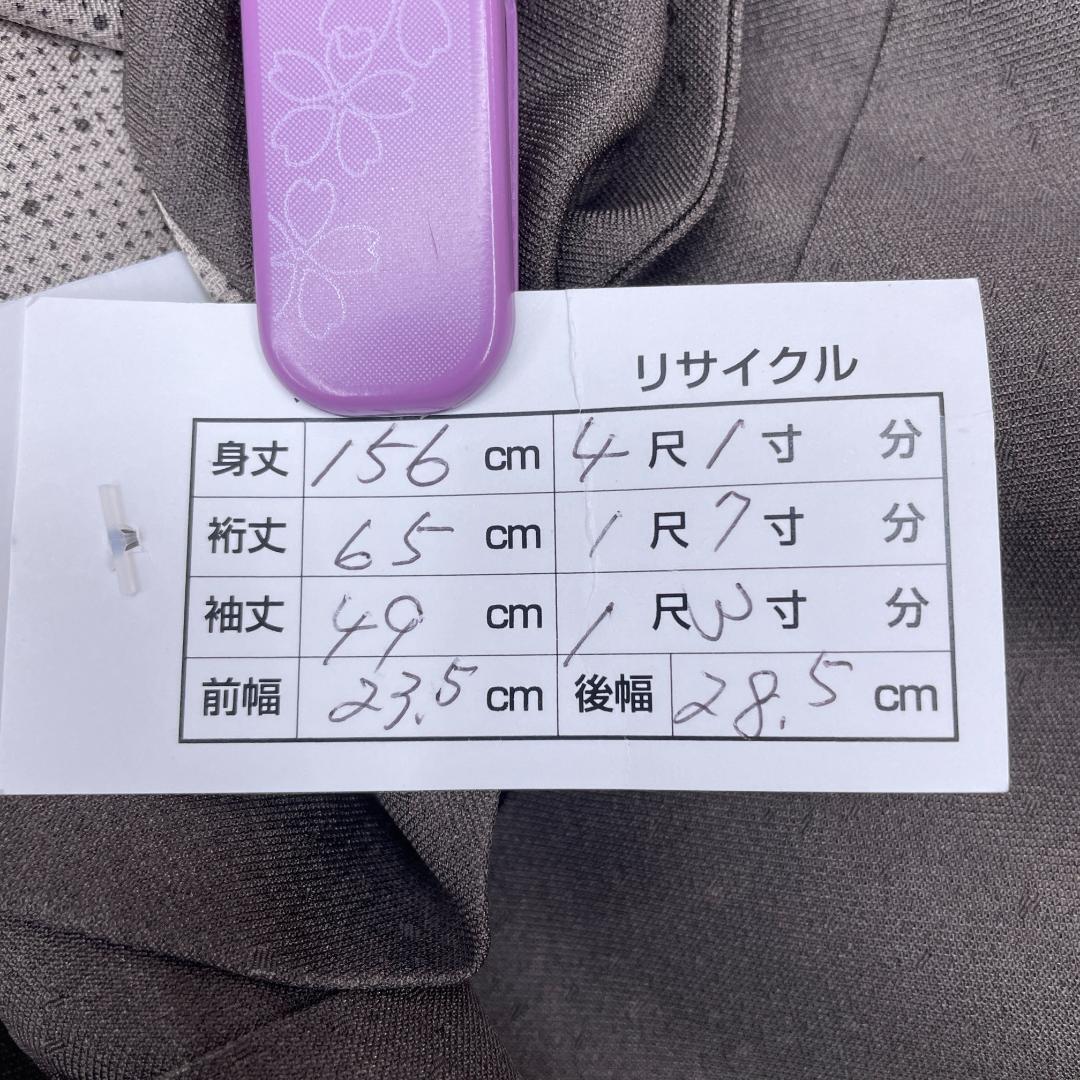 リサイクル
身丈 156 cm 4 尺 1 寸 分
裄丈 65 cm 1 尺 7 寸 分
袖丈 49 cm 1 尺 3 寸 分
前幅 23.5 cm 後幅 28.5 cm